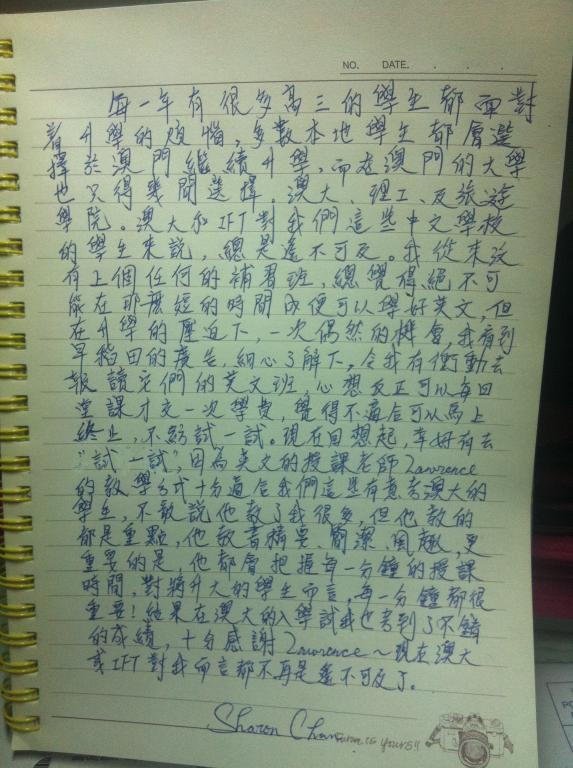 NO. DATE. . . .
每一年有很多高三的學生都面對
着升學的煩惱，多數本地學生都會選
擇於澳門繼續升學，而在澳門的大學
也只得幾間選擇，澳大、理工、及旅遊
學院。澳大和IFT對我們這些中文學校
的學生來說，總是遙不可及。我從來沒
有上個任何的補習班，總覺得絕不可
能在那麼短的時間成便可以學好英文，但
在升學的壓迫下，一次偶然的機會，我看到
早稻田的廣告，細心了解下，令我有衝動去
報讀它們的英文班，心想反正可以每回
堂課才交一次學費，覺得不適合可以馬上
終止，不妨試一試。現在回想起，幸好有去
"試一試"，因為英文的授課老師Lawrence
的教學方式十分適合我們這些有意考澳大的
學生，不敢說他教了我很多，但他教的
都是重點，他教書精要、簡潔、風趣，更
重要的是，他都會把握每一分鐘的授課
時間，對將升大的學生而言，每一分鐘都很
重要！結果在澳大的入學試我也考到了不錯
的成績，十分感謝Lawrence～現在澳大
或IFT對我而言都不再是遙不可及了。
Sharon Chan
is yours!!